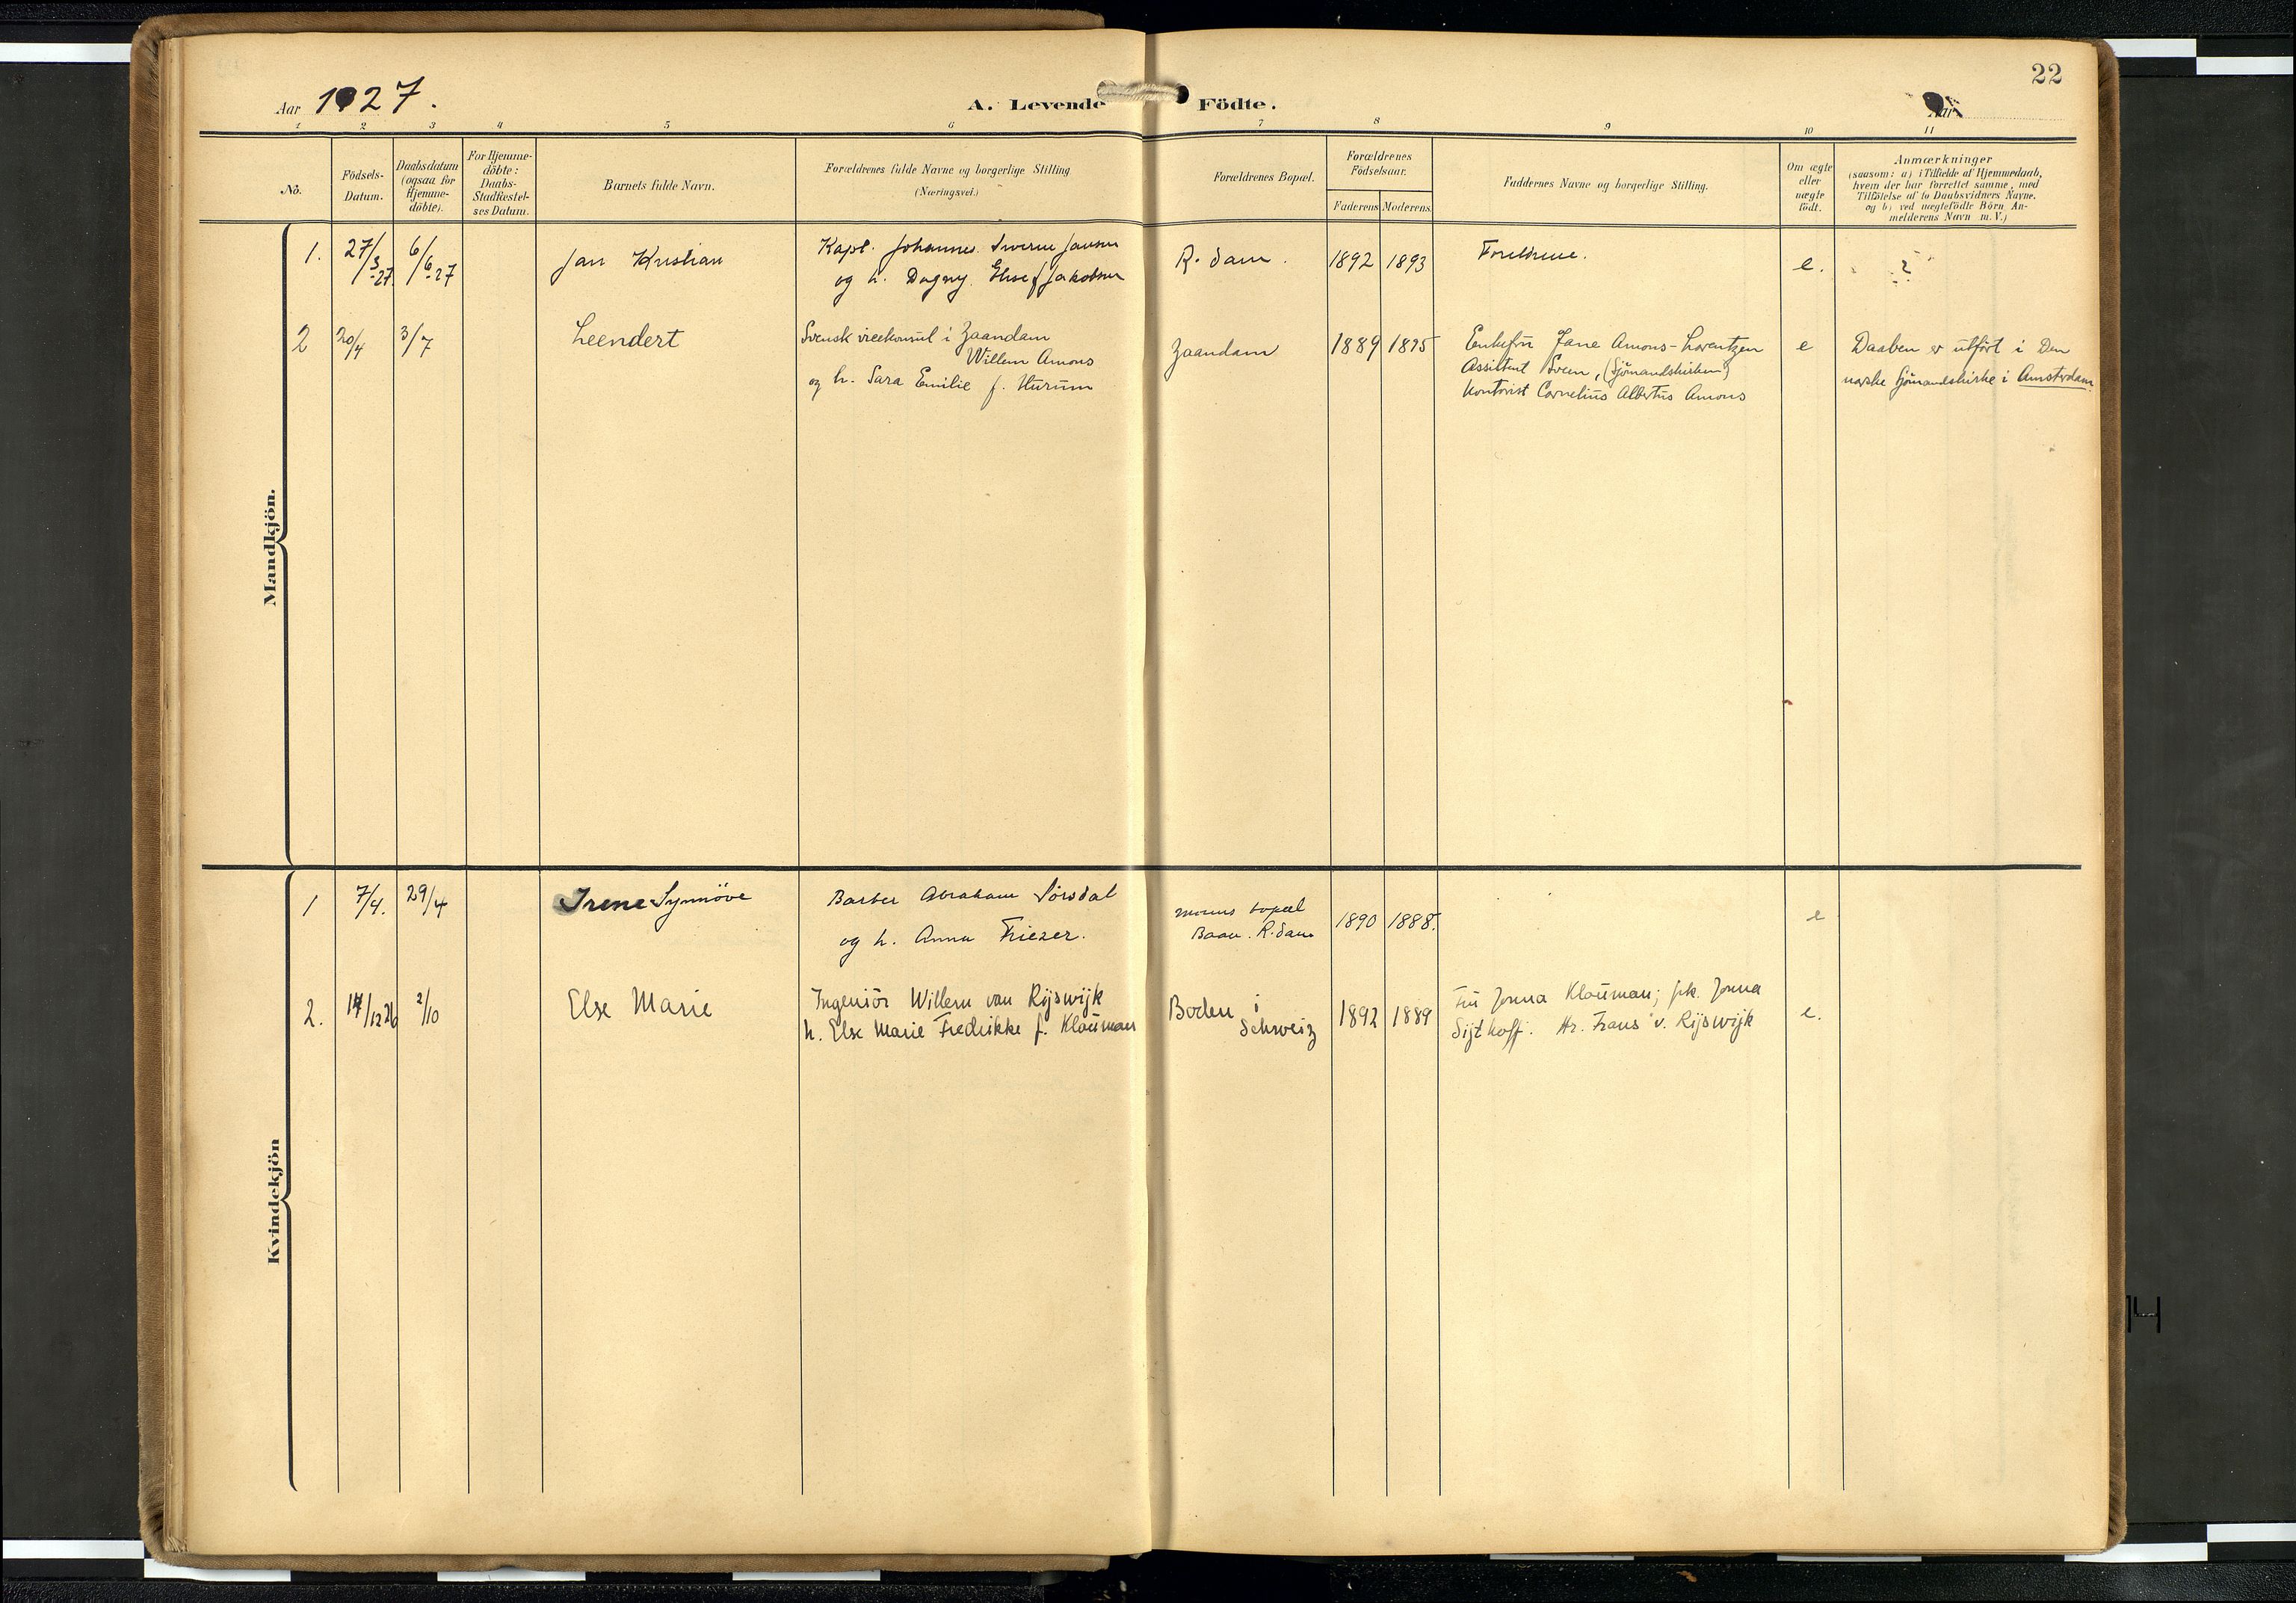 22
Aar 1927.
A. Levende Födte.
Aar
1 2 3 4 5 6 7 8 9 10 11
No.
Födsels-
Datum.
Daabsdatum
(ogsaa for
Hjemme-
döbte).
For Hjemme-
döbte:
Daabs-
Stadfæstel-
ses Datum.
Barnets fulde Navn.
Forældrenes fulde Navne og borgerlige Stilling
(Næringsvei.)
Forældrenes Bopæl.
Forældrenes
Födselsaar.
Faderens Moderens
Faddernes Navne og borgerlige Stilling.
Om ægte
eller
uægte
födt.
Anmærkninger
(saasom: a) i Tilfælde af Hjemmedaab,
hvem der har forrettet samme, med
Tilföielse af to Daabsvidners Navne.
og b) ved uægtefödte Börn, An-
melderens Navn m. V.)
Mandkjön.
1.
27/3-27.
6/6-27
Jan Kristian
Kapt. Johannes Jansen
og h. Dagny Elise f. Jakobsen
R.dam.
1892 1893
Foreldrene.
e.
?
2
20/4
3/7
Leendert
Svensk vicekonsul i Zaandam
Willem Amons
og h. Sara Emilie f. Hurum
Zaandam
1889 1895
Enkefru Jane Amons-Lorentzen
Assistent Sveen, (Sjömandskirken)
Kontorist Cornelius Albertus Amons
e
Daaben er utfört i Den
norske Sjömandskirke i Amsterdam.
Kvindekjön
1
7/4.
29/4
Irene Synnöve
Barber Abraham Sörsdal
og h. Anna Friezer.
bopæl
R.dam
1890 1888.
e
2.
14/12 26
2/10
Else Marie
Ingeniör Willem van Rijswijk
h. Else Marie Fredrikke f. Klouman
Boden i
Schweiz
1892 1889
Fru Jonna Klouman; frk. Jonna
Sijthoff. Hr. Frans v. Rijswijk
e.
14